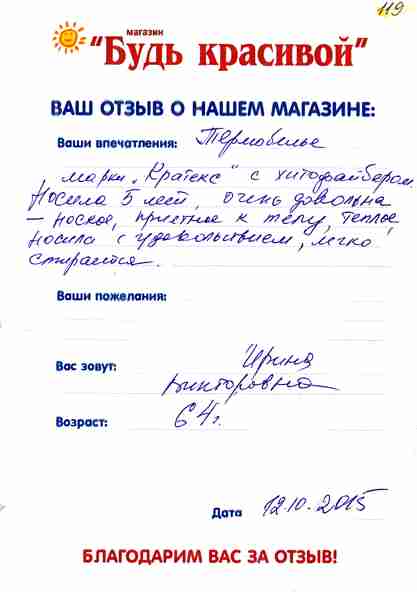 119
магазин
"Будь красивой"
ВАШ ОТЗЫВ О НАШЕМ МАГАЗИНЕ:
Ваши впечатления: Термобелье
марки „Кратекс" с хитофайбером.
Носила 5 лет, очень довольна
— ноское, приятное к телу, теплое,
носила с удовольствием, легко
стирается.
Ваши пожелания:
Вас зовут: Ирина
Викторовна
Возраст: 64 г.
Дата 12.10.2015
БЛАГОДАРИМ ВАС ЗА ОТЗЫВ!